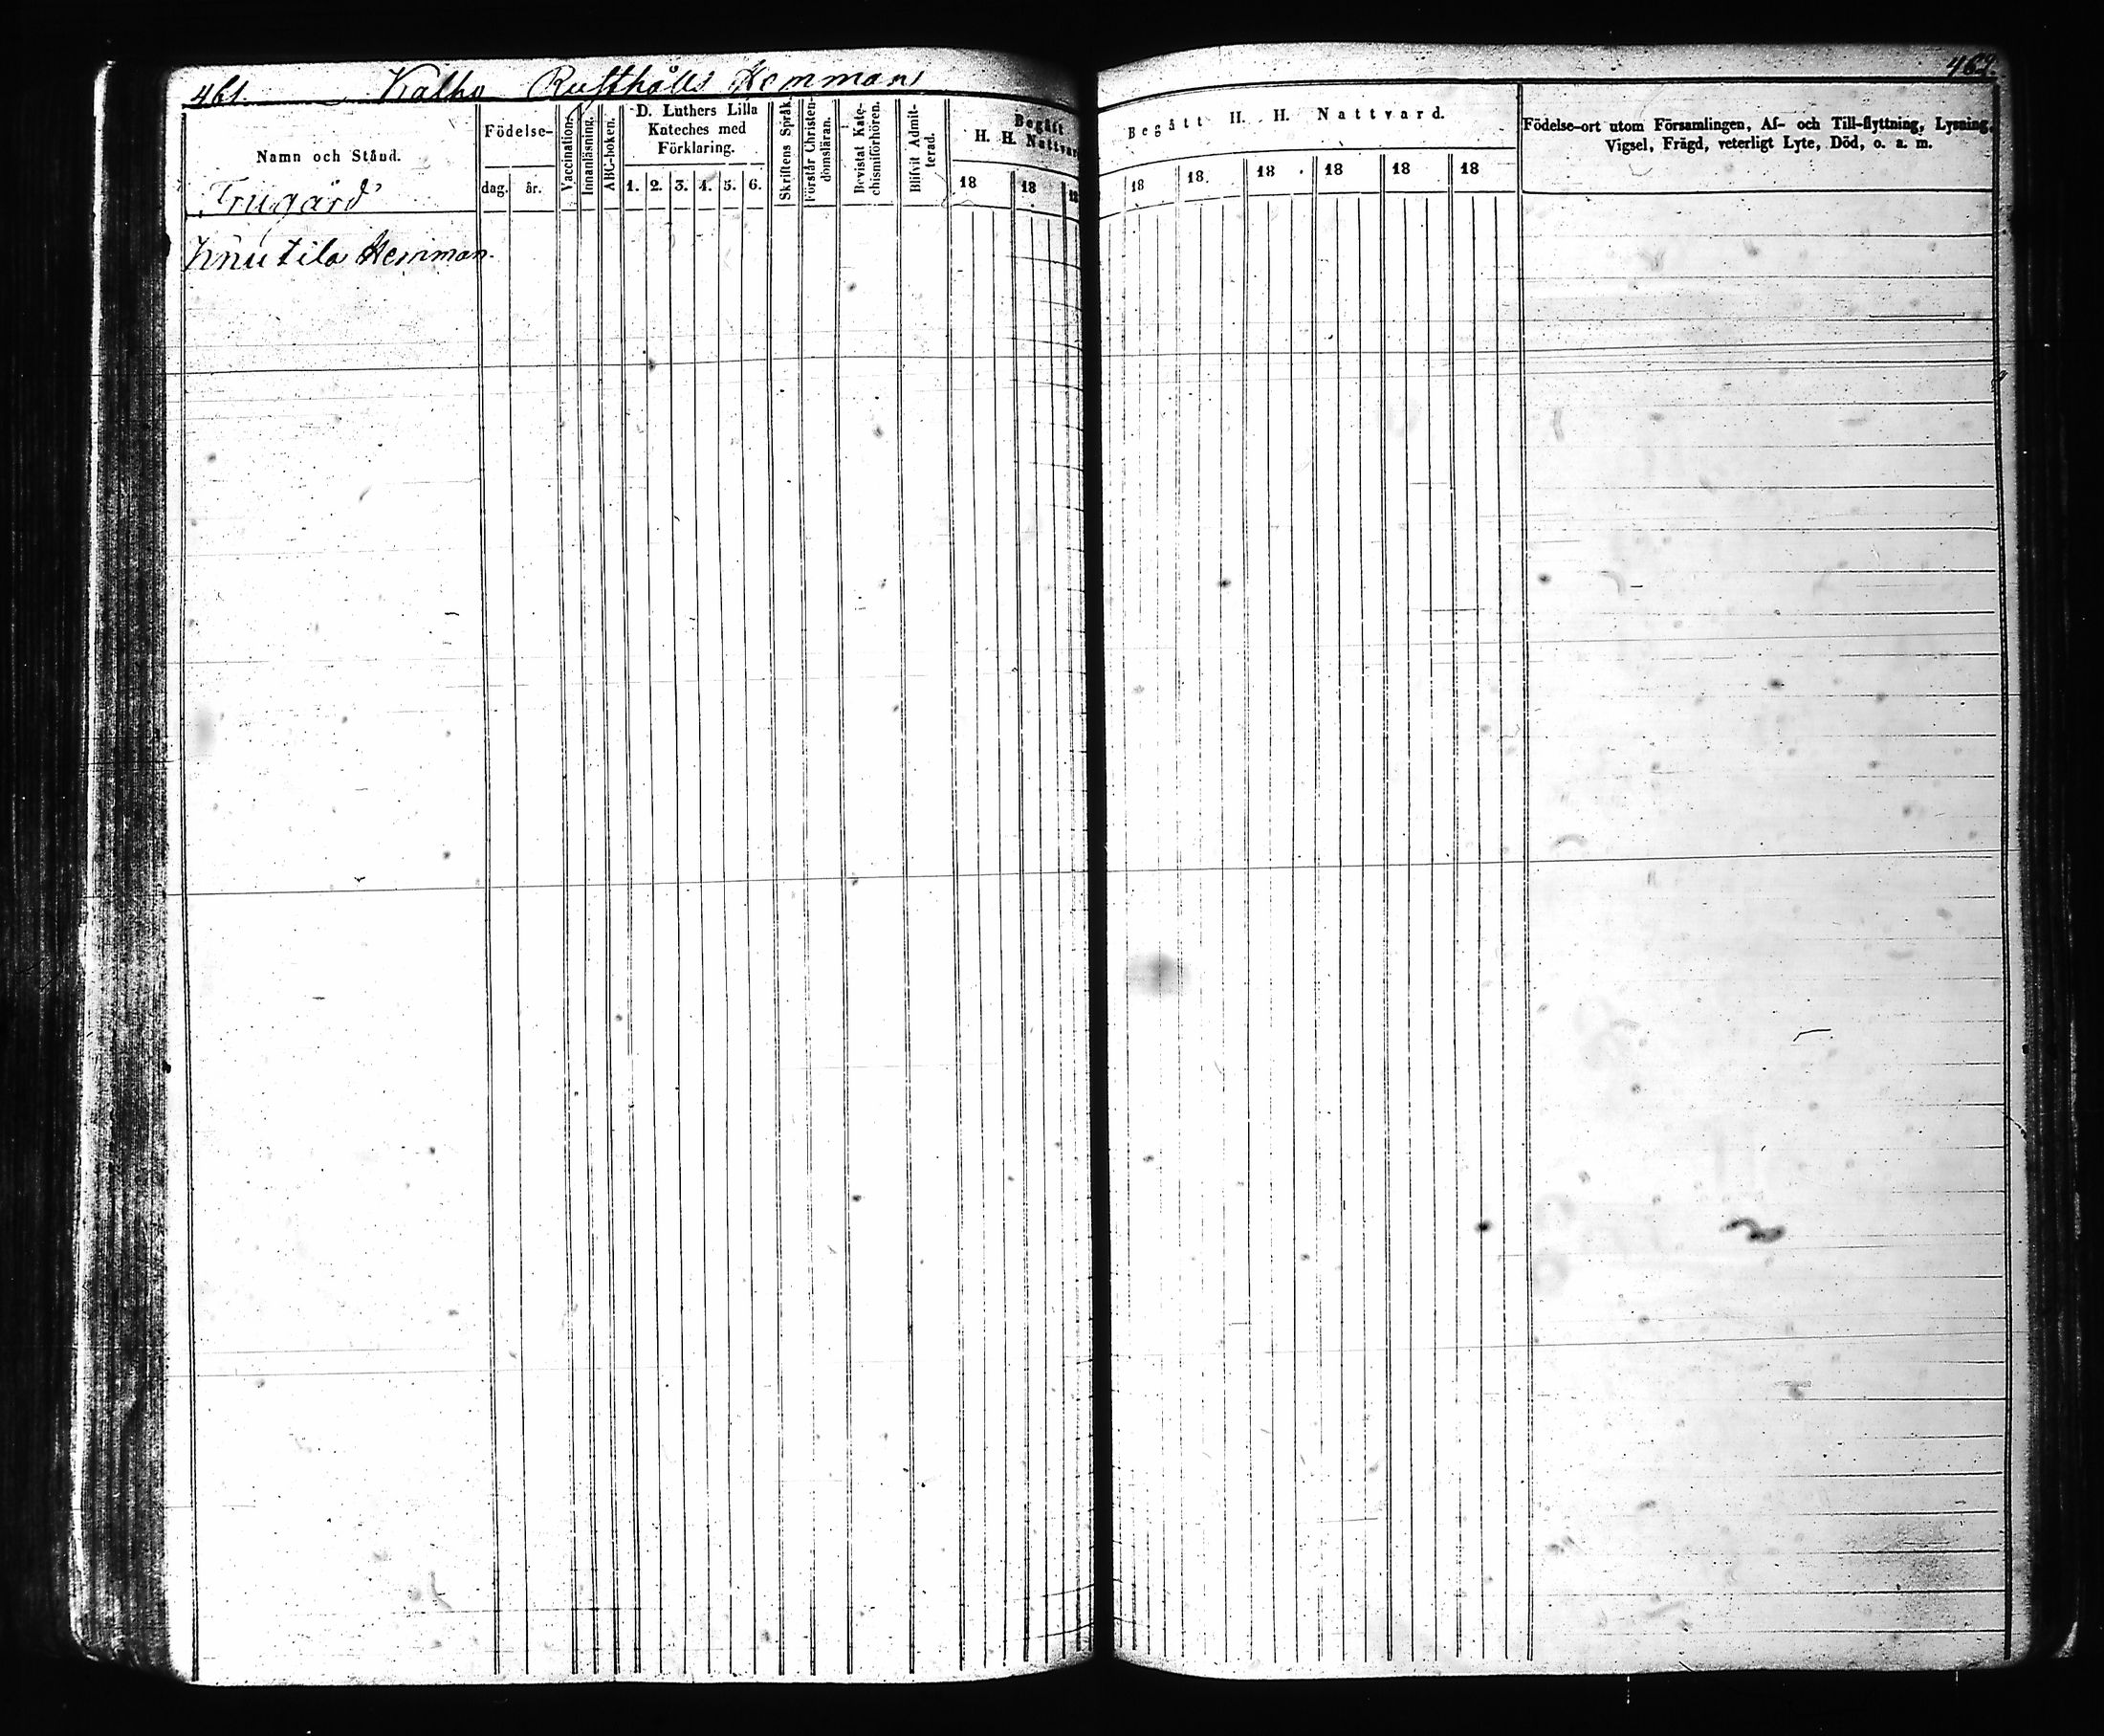 461. Kalho Rusthålls Hemman
Namn och Stånd.
Frugård
Födelse-
dag. år.
Vaccination.
Innanläsning.
ABC-boken.
D. Luthers Lilla
Kateches med
Förklaring.
1. 2. 3. 4. 5. 6.
Skriftens Språk.
Förstår Christen-
domsläran.
Bevistat Kate-
chismiförhören.
Blifvit Admit-
terad.
Begått
H. H. Nattvard
18 18 18
Knutila Hemman.
462.
Begått H. H. Nattvard.
18 18. 18 18 18 18
Födelse-ort utom Församlingen, Af- och Till-flyttning, Lysning,
Vigsel, Frägd, veterligt Lyte, Död, o. a. m.